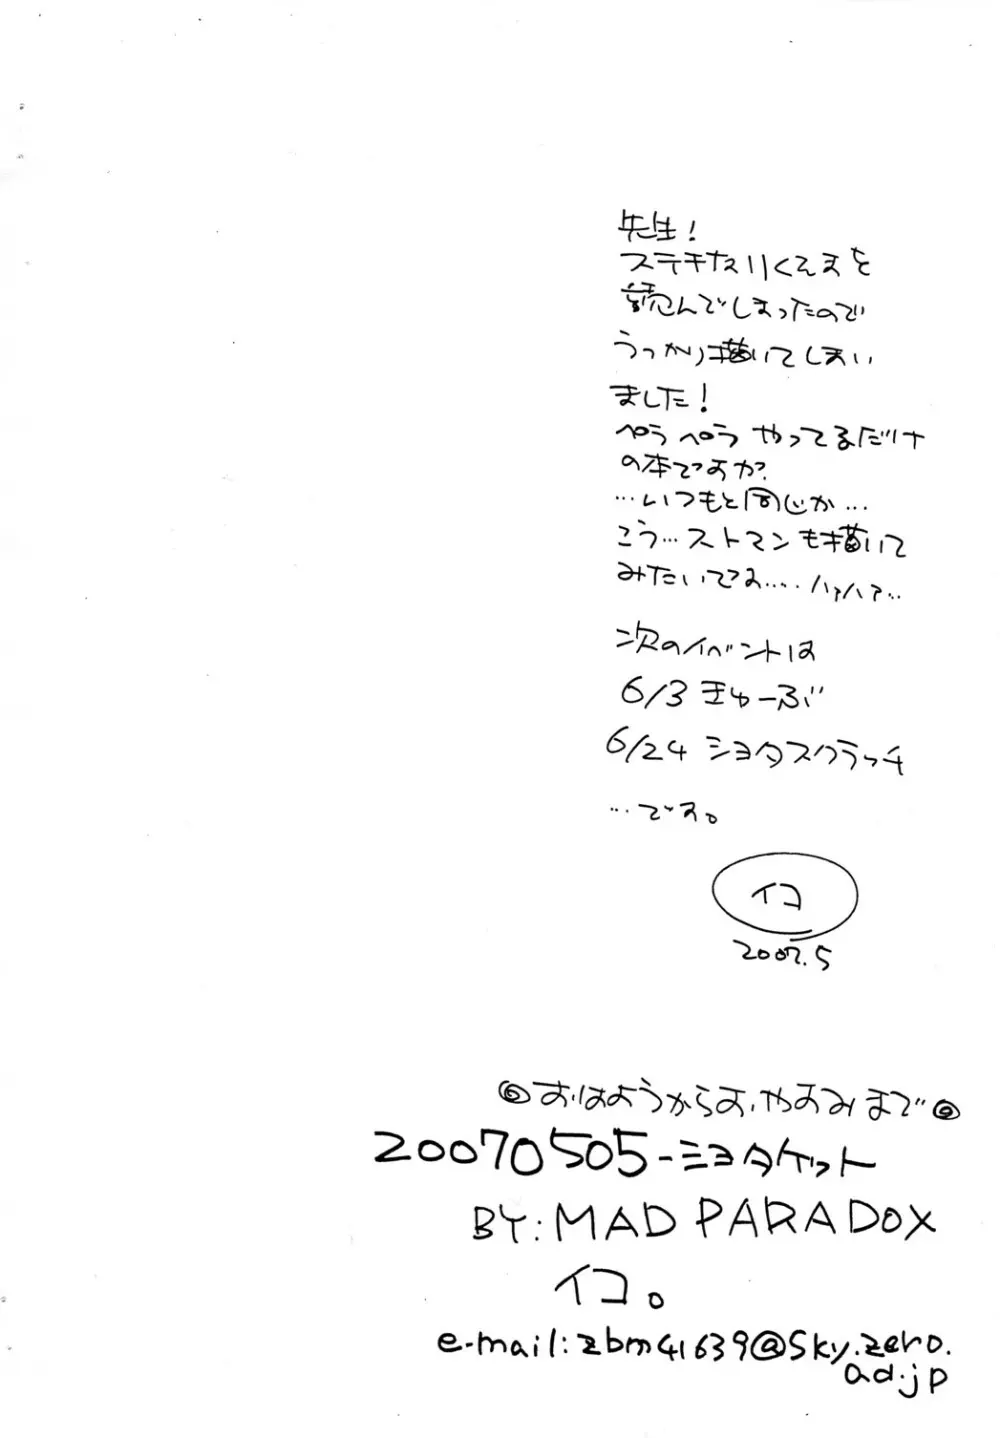 先生!
ステキなリくえすを
読んでしまったので
うっかり描いてしまい
ました!
ペラペラやってるだけ
の本ですが?
…いつもと同じか…
こう…ストマンも描いて
みたいですお…. ハァハァ…
次のイベントは
6/3 きゅーぶ
6/24 ショタスクラッチ
…です。
イコ
2007.5
◎おはようからおやすみまで◎
20070505-ショタケット
BY: MAD PARADOX
イコ。
e-mail: zbm41639@sky.zero.
ad.jp